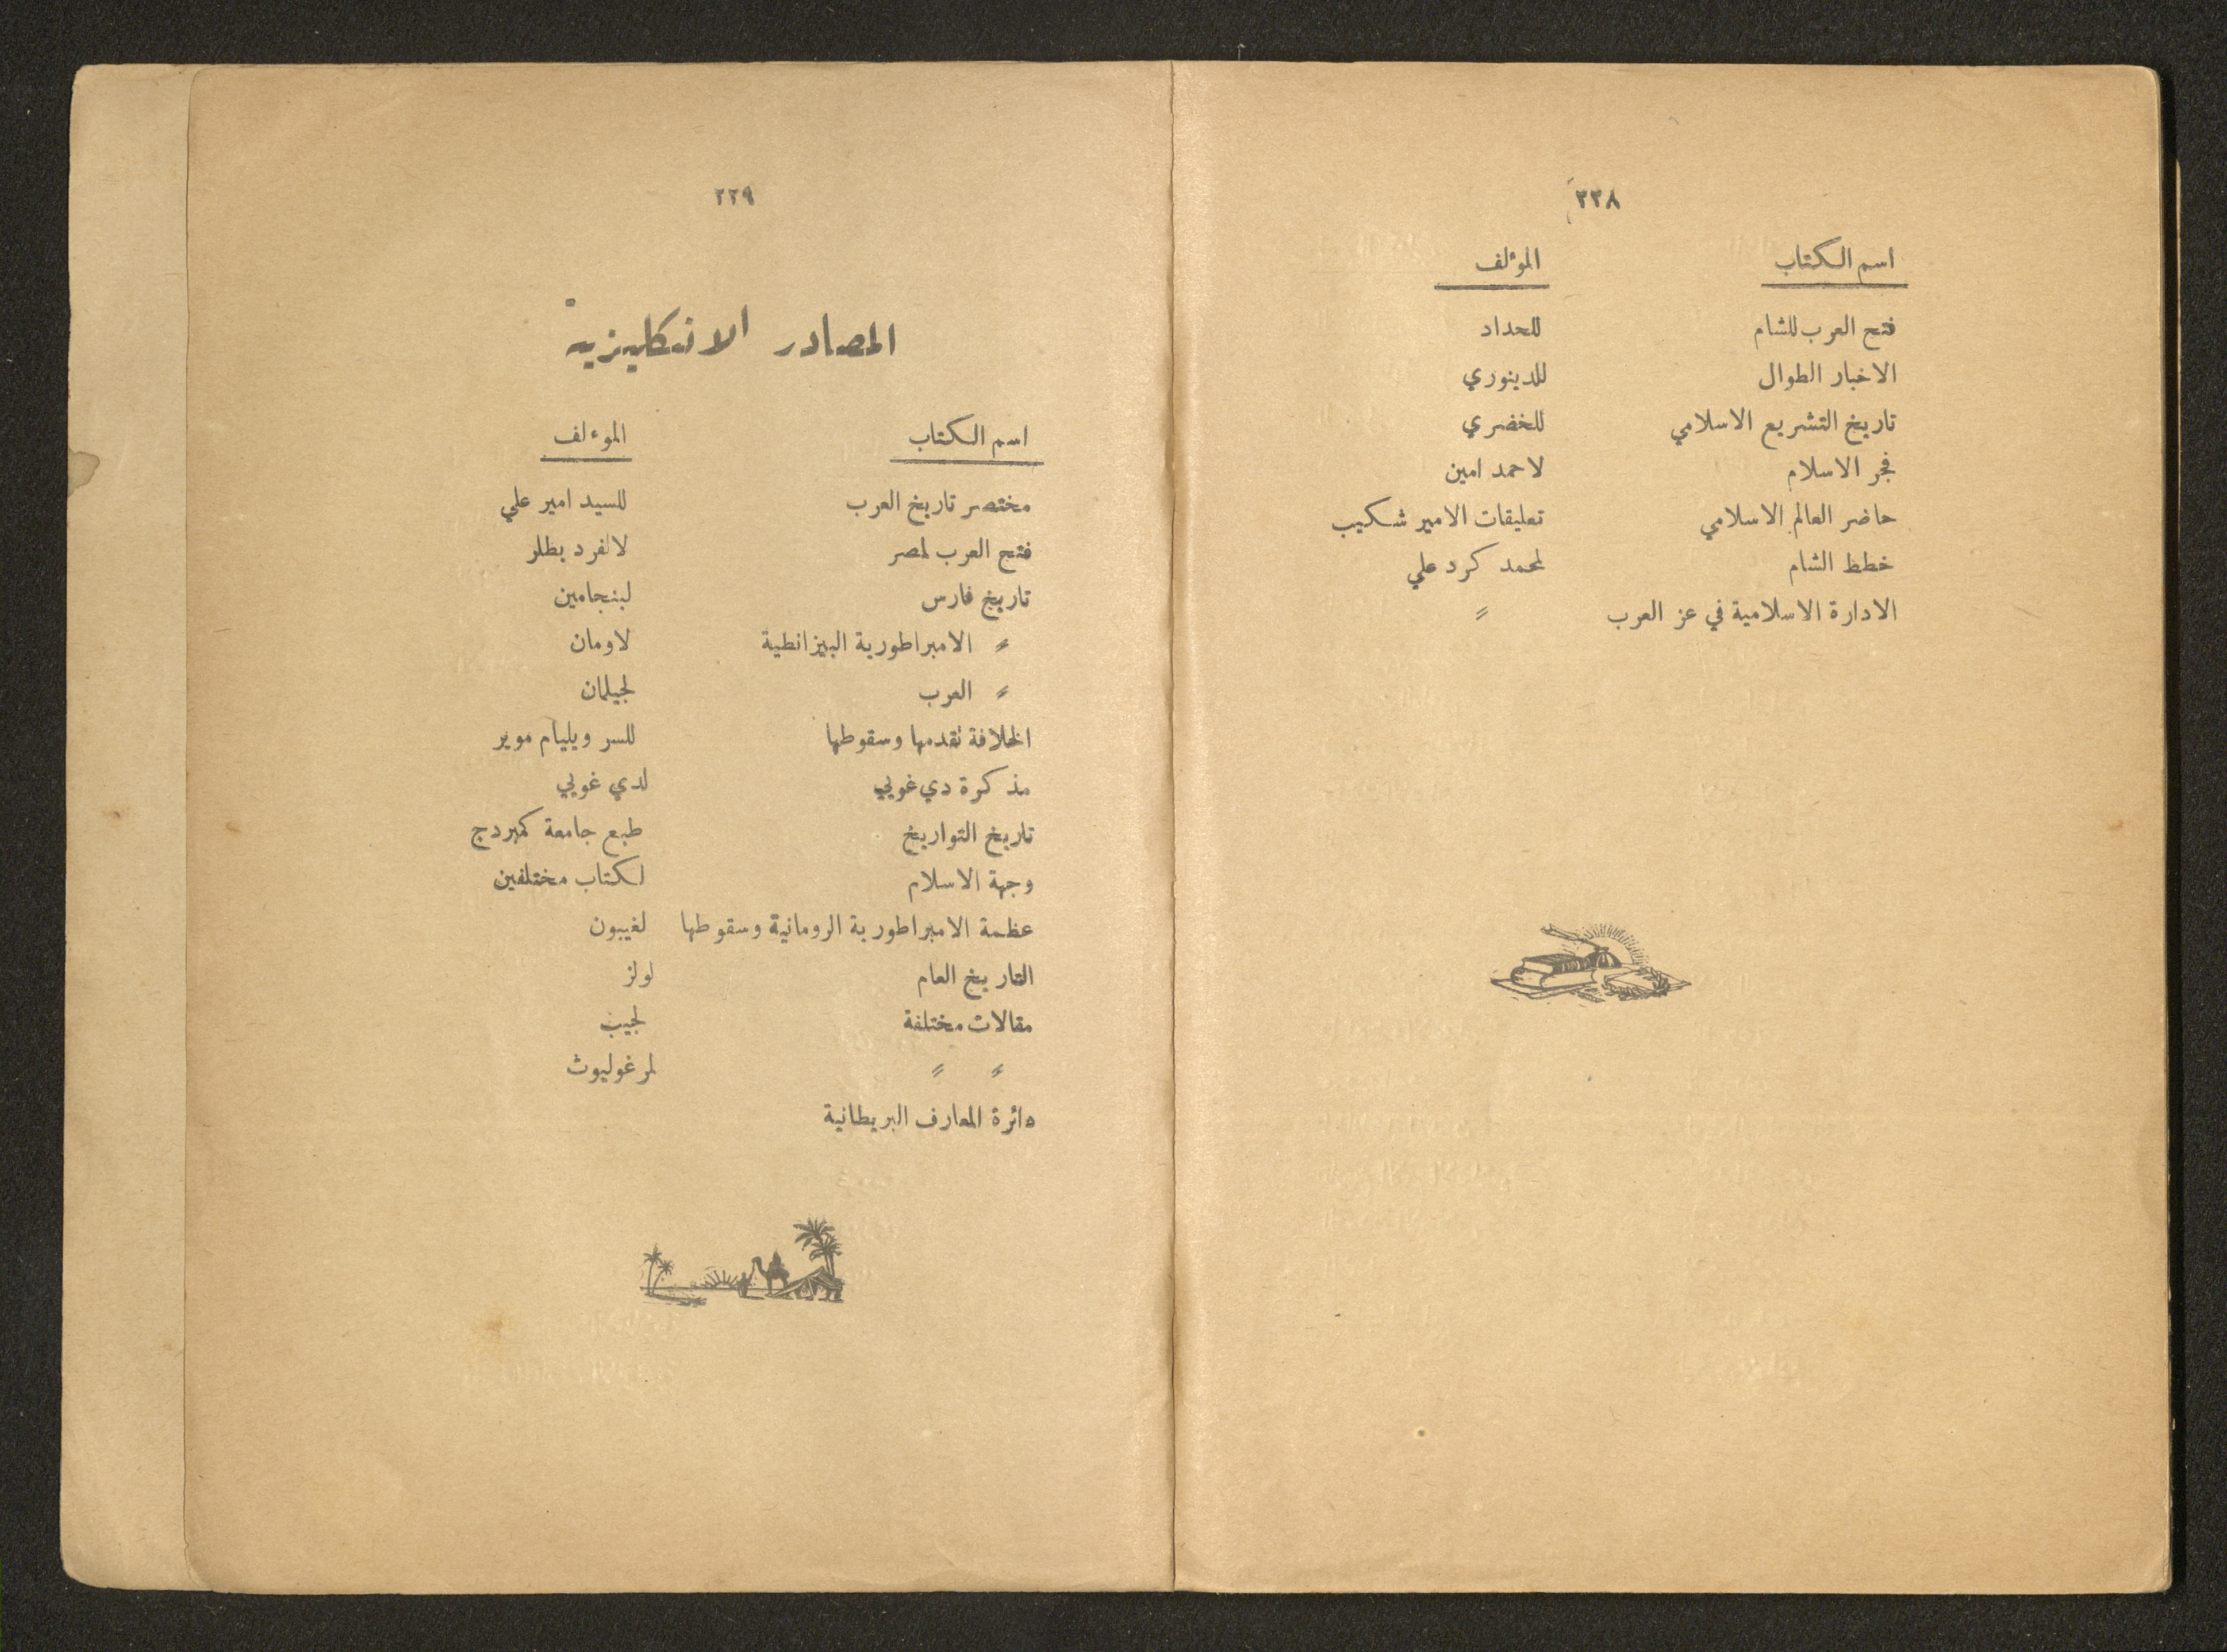 ٢٣٨
اسم الكتاب المؤلف
فتح العرب للشام للحداد
الاخبار الطوال للدينوري
تاريخ التشريع الاسلامي للخضري
فجر الاسلام لاحمد امين
حاضر العالم الاسلامي تعليقات الامير شكيب
خطط الشام لمحمد كرد علي
الادارة الاسلامية في عز العرب 〃
٢٣٩
المصادر الانكليزية
اسم الكتاب الموءلف
مختصر تاريخ العرب للسيد امير علي
فتح العرب لمصر لالفرد بطلر
تاريخ فارس لبنجامين
〃 الامبراطورية البيزانطية لاومان
〃 العرب لجيلمان
الخلافة تقدمها وسقوطها للسر ويليام موير
مذكرة دي غويي لدي غويي
تاريخ التواريخ طبع جامعة كمبردج
وجهة الاسلام لكتاب مختلفين
عظمة الامبراطورية الرومانية وسقوطها لغيبون
التاريخ العام لولز
مقالات مختلفة لجيب
〃 〃 لمرغوليوث
دائرة المعارف البريطانية